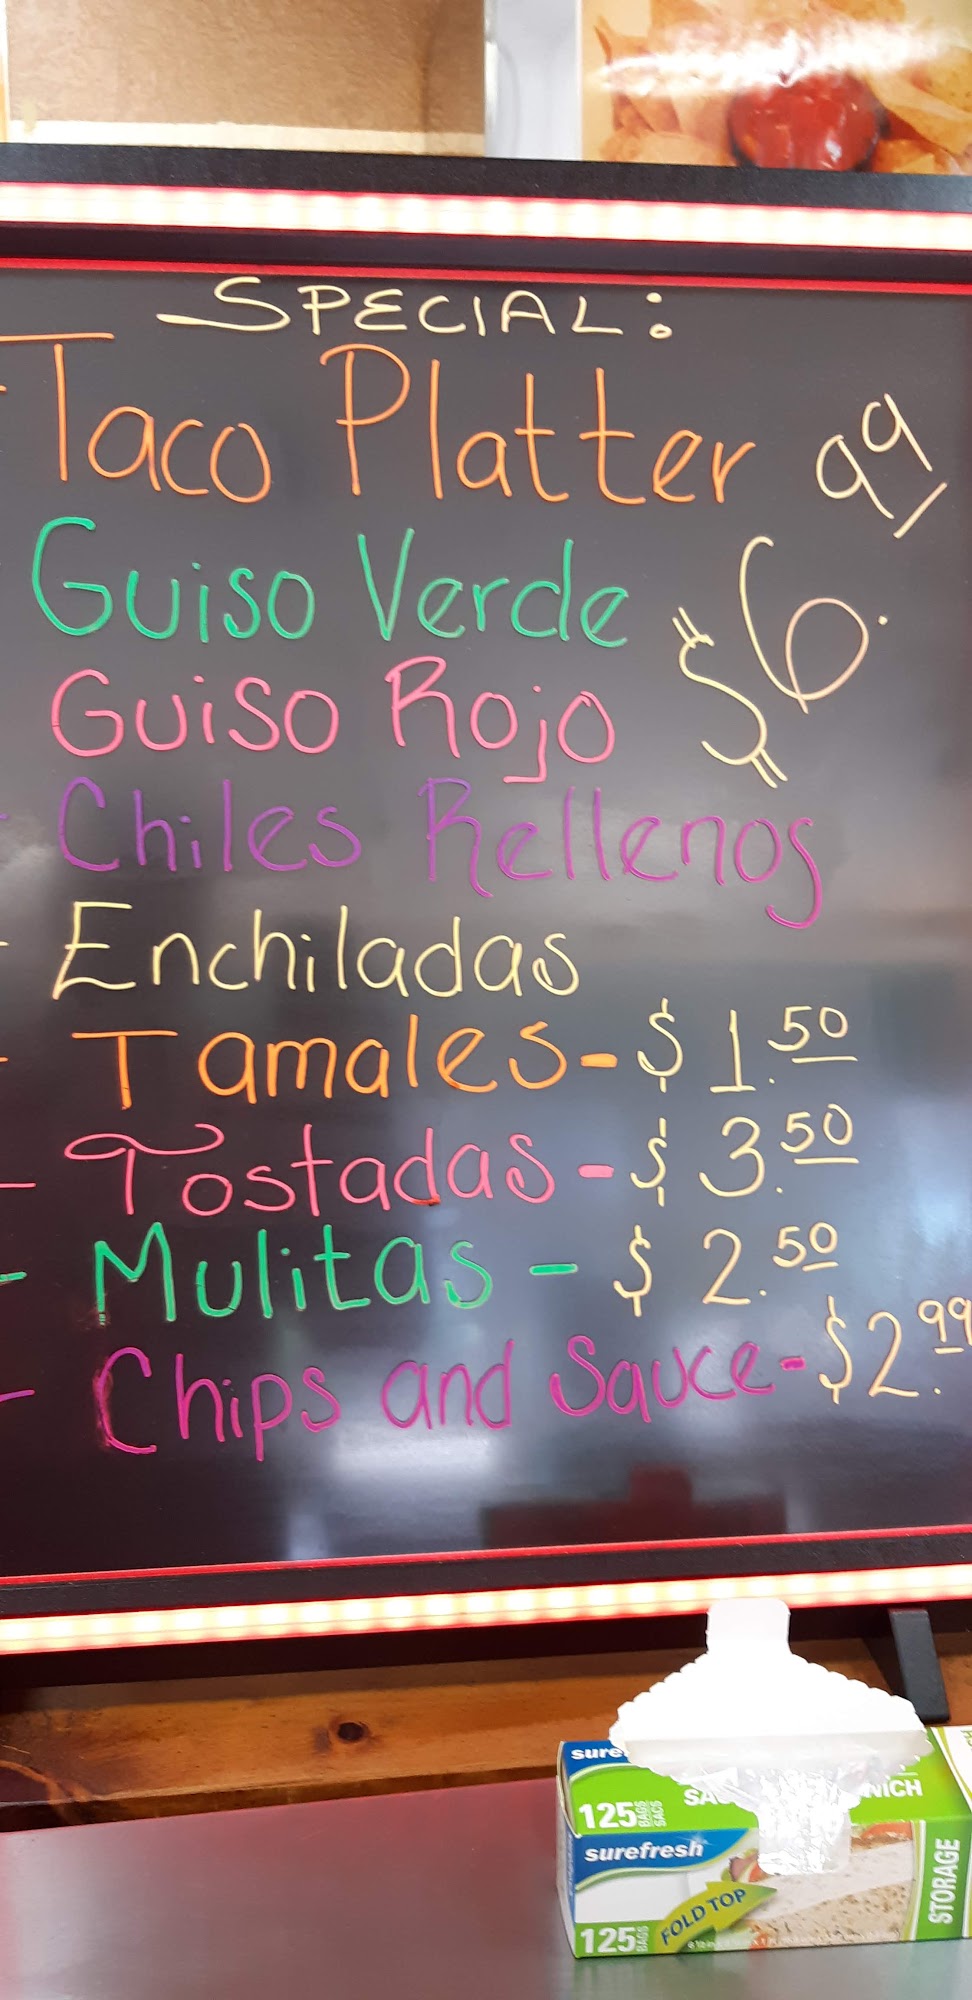 SPECIAL:
Taco Platter
Guiso Verde
Guiso Rojo
$6.99
Chiles Rellenos
- Enchiladas
- Tamales - $1.50
- Tostadas - $3.50
- Mulitas - $2.50
- Chips and Sauce - $2.99
sure
125 BAGS SACS
NICH
surefresh
FOLD TOP
125 BAGS
STORAGE